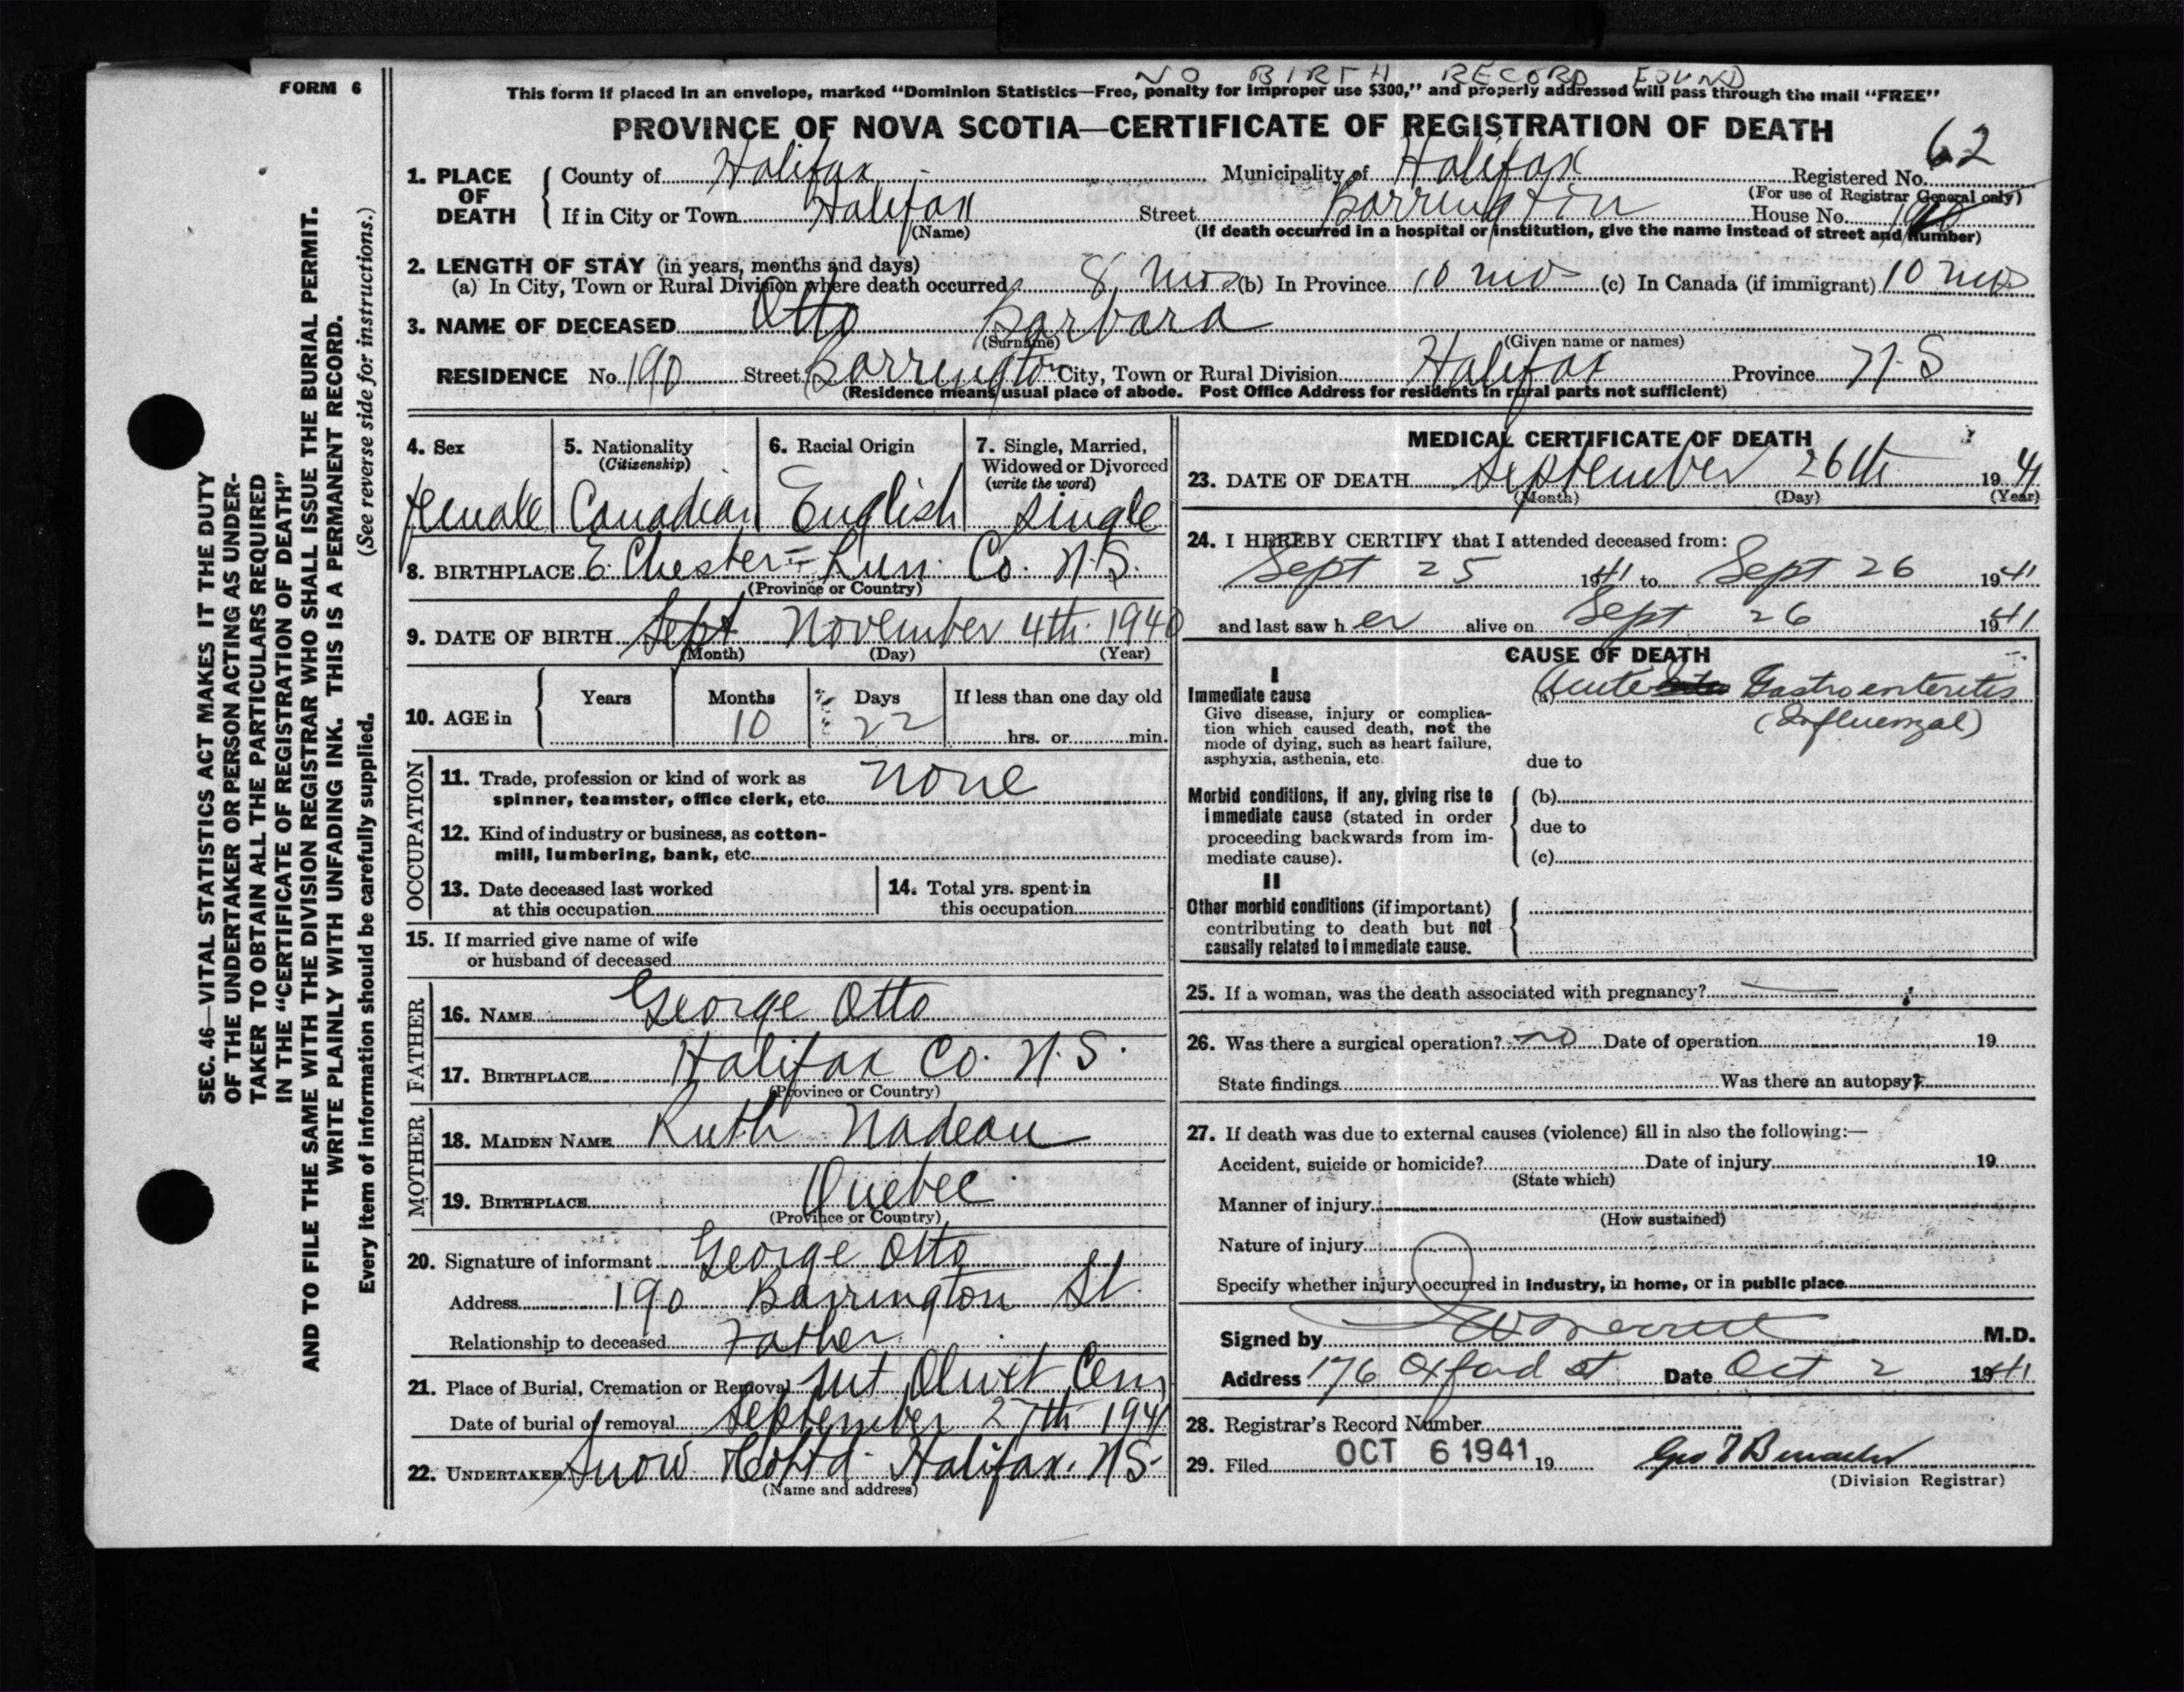 NO BIRTH RECORD FOUND
FORM 6
This form if placed in an envelope, marked "Dominion Statistics—Free, penalty for improper use $300," and properly addressed will pass through the mail "FREE"
PROVINCE OF NOVA SCOTIA—CERTIFICATE OF REGISTRATION OF DEATH
1. PLACE OF DEATH County of Halifax Municipality of Halifax Registered No. 62
(For use of Registrar General only)
If in City or Town Halifax Street Barrington House No. 190
(Name) (If death occurred in a hospital or institution, give the name instead of street and number)
2. LENGTH OF STAY (in years, months and days)
(a) In City, Town or Rural Division where death occurred 8 mos (b) In Province 10 mos (c) In Canada (if immigrant) 10 mos
3. NAME OF DECEASED Otto Barbara
(Surname) (Given name or names)
RESIDENCE No. 190 Street Barrington City, Town or Rural Division Halifax Province N.S
(Residence means usual place of abode. Post Office Address for residents in rural parts not sufficient)
4. Sex 5. Nationality 6. Racial Origin 7. Single, Married,
(Citizenship) Widowed or Divorced
(write the word)
Female Canadian English Single
8. BIRTHPLACE E. Chester = Lun. Co. N.S.
(Province or Country)
9. DATE OF BIRTH Sept November 4th 1940
(Month) (Day) (Year)
10. AGE in Years Months Days If less than one day old
10 22 hrs. or min.
OCCUPATION
11. Trade, profession or kind of work as
spinner, teamster, office clerk, etc. None
12. Kind of industry or business, as cotton-
mill, lumbering, bank, etc.
13. Date deceased last worked
at this occupation
14. Total yrs. spent in
this occupation
15. If married give name of wife
or husband of deceased
FATHER
16. NAME George Otto
17. BIRTHPLACE Halifax Co. N.S.
(Province or Country)
MOTHER
18. MAIDEN NAME Ruth Nadeau
19. BIRTHPLACE Quebec
(Province or Country)
20. Signature of informant George Otto
Address 190 Barrington St.
Relationship to deceased Father
21. Place of Burial, Cremation or Removal Mt Olivet Cem
Date of burial or removal September 27th 1941
22. UNDERTAKER Snow & Co Ltd. Halifax. N.S.
(Name and address)
MEDICAL CERTIFICATE OF DEATH
23. DATE OF DEATH September 26th 1941
(Month) (Day) (Year)
24. I HEREBY CERTIFY that I attended deceased from:
Sept 25 1941 to Sept 26 1941
and last saw her alive on Sept 26 1941
CAUSE OF DEATH
I
Immediate cause
Give disease, injury or complica-
tion which caused death, not the
mode of dying, such as heart failure,
asphyxia, asthenia, etc.
(a) Acute Gastroenteritis
(Influenzal)
due to
Morbid conditions, if any, giving rise to
immediate cause (stated in order
proceeding backwards from im-
mediate cause).
(b)
due to
(c)
II
Other morbid conditions (if important)
contributing to death but not
causally related to immediate cause.
25. If a woman, was the death associated with pregnancy? —
26. Was there a surgical operation? no Date of operation 19
State findings Was there an autopsy?
27. If death was due to external causes (violence) fill in also the following:—
Accident, suicide or homicide? Date of injury 19
(State which)
Manner of injury
(How sustained)
Nature of injury
Specify whether injury occurred in industry, in home, or in public place
Signed by M.D.
Address 176 Oxford st Date Oct 2 1941
28. Registrar's Record Number
29. Filed OCT 6 1941 19
(Division Registrar)
SEC. 46—VITAL STATISTICS ACT MAKES IT THE DUTY
OF THE UNDERTAKER OR PERSON ACTING AS UNDER-
TAKER TO OBTAIN ALL THE PARTICULARS REQUIRED
IN THE "CERTIFICATE OF REGISTRATION OF DEATH"
AND TO FILE THE SAME WITH THE DIVISION REGISTRAR WHO SHALL ISSUE THE BURIAL PERMIT.
WRITE PLAINLY WITH UNFADING INK. THIS IS A PERMANENT RECORD.
Every item of information should be carefully supplied. (See reverse side for instructions.)